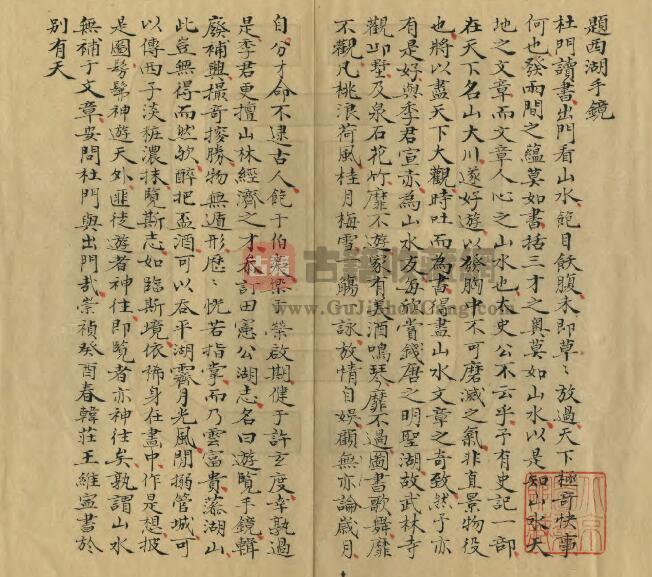 題西湖手鏡
杜門讀書出門看山水飽目飫腹未即草〻放過天下極奇快事
何也發兩間之蘊莫如書括三才之奧莫如山水以是知山水天
地之文章而文章人心之山水也太史公不云乎予有史記一部
在天下名山大川遂好遊以發胸中不可磨滅之氣非直景物役
也將以盡天下大觀時吐而為書得盡山水文章之奇致然予亦
有是好與李君宣亦為山水友每欣賞錢唐之明聖湖故武林寺
觀邱墅及泉石花竹靡不遊家有美酒鳴琴靡不過圖書歌舞靡
不觀凡桃浪荷風桂月梅雪一觴一詠放情自娛顧無亦論歲月
自分才命不逮古人飽于伯鸞梁壬榮啟期健于許玄度幸孰過
是李君更擅山林經濟之才叅訂田憲公湖志名曰遊覽手鏡輯
廢補興撮奇擦勝物無遁形歷〻恍若指掌而乃雲富貴蓀湖山
此豈無得而然欤醉把盃酒可以吞平湖霽月光風閒搦管城可
以傳西子淡粧濃抹覽斯志如臨斯境依稀身在畫中作是想披
是圖髣髴神遊天外匪徒遊者神往即覽者亦神往矣孰謂山水
無補于文章安問杜門與出門哉崇禎癸酉春韓莊王維寍書於
別有天
古籍
www.GuJiShuCang.com